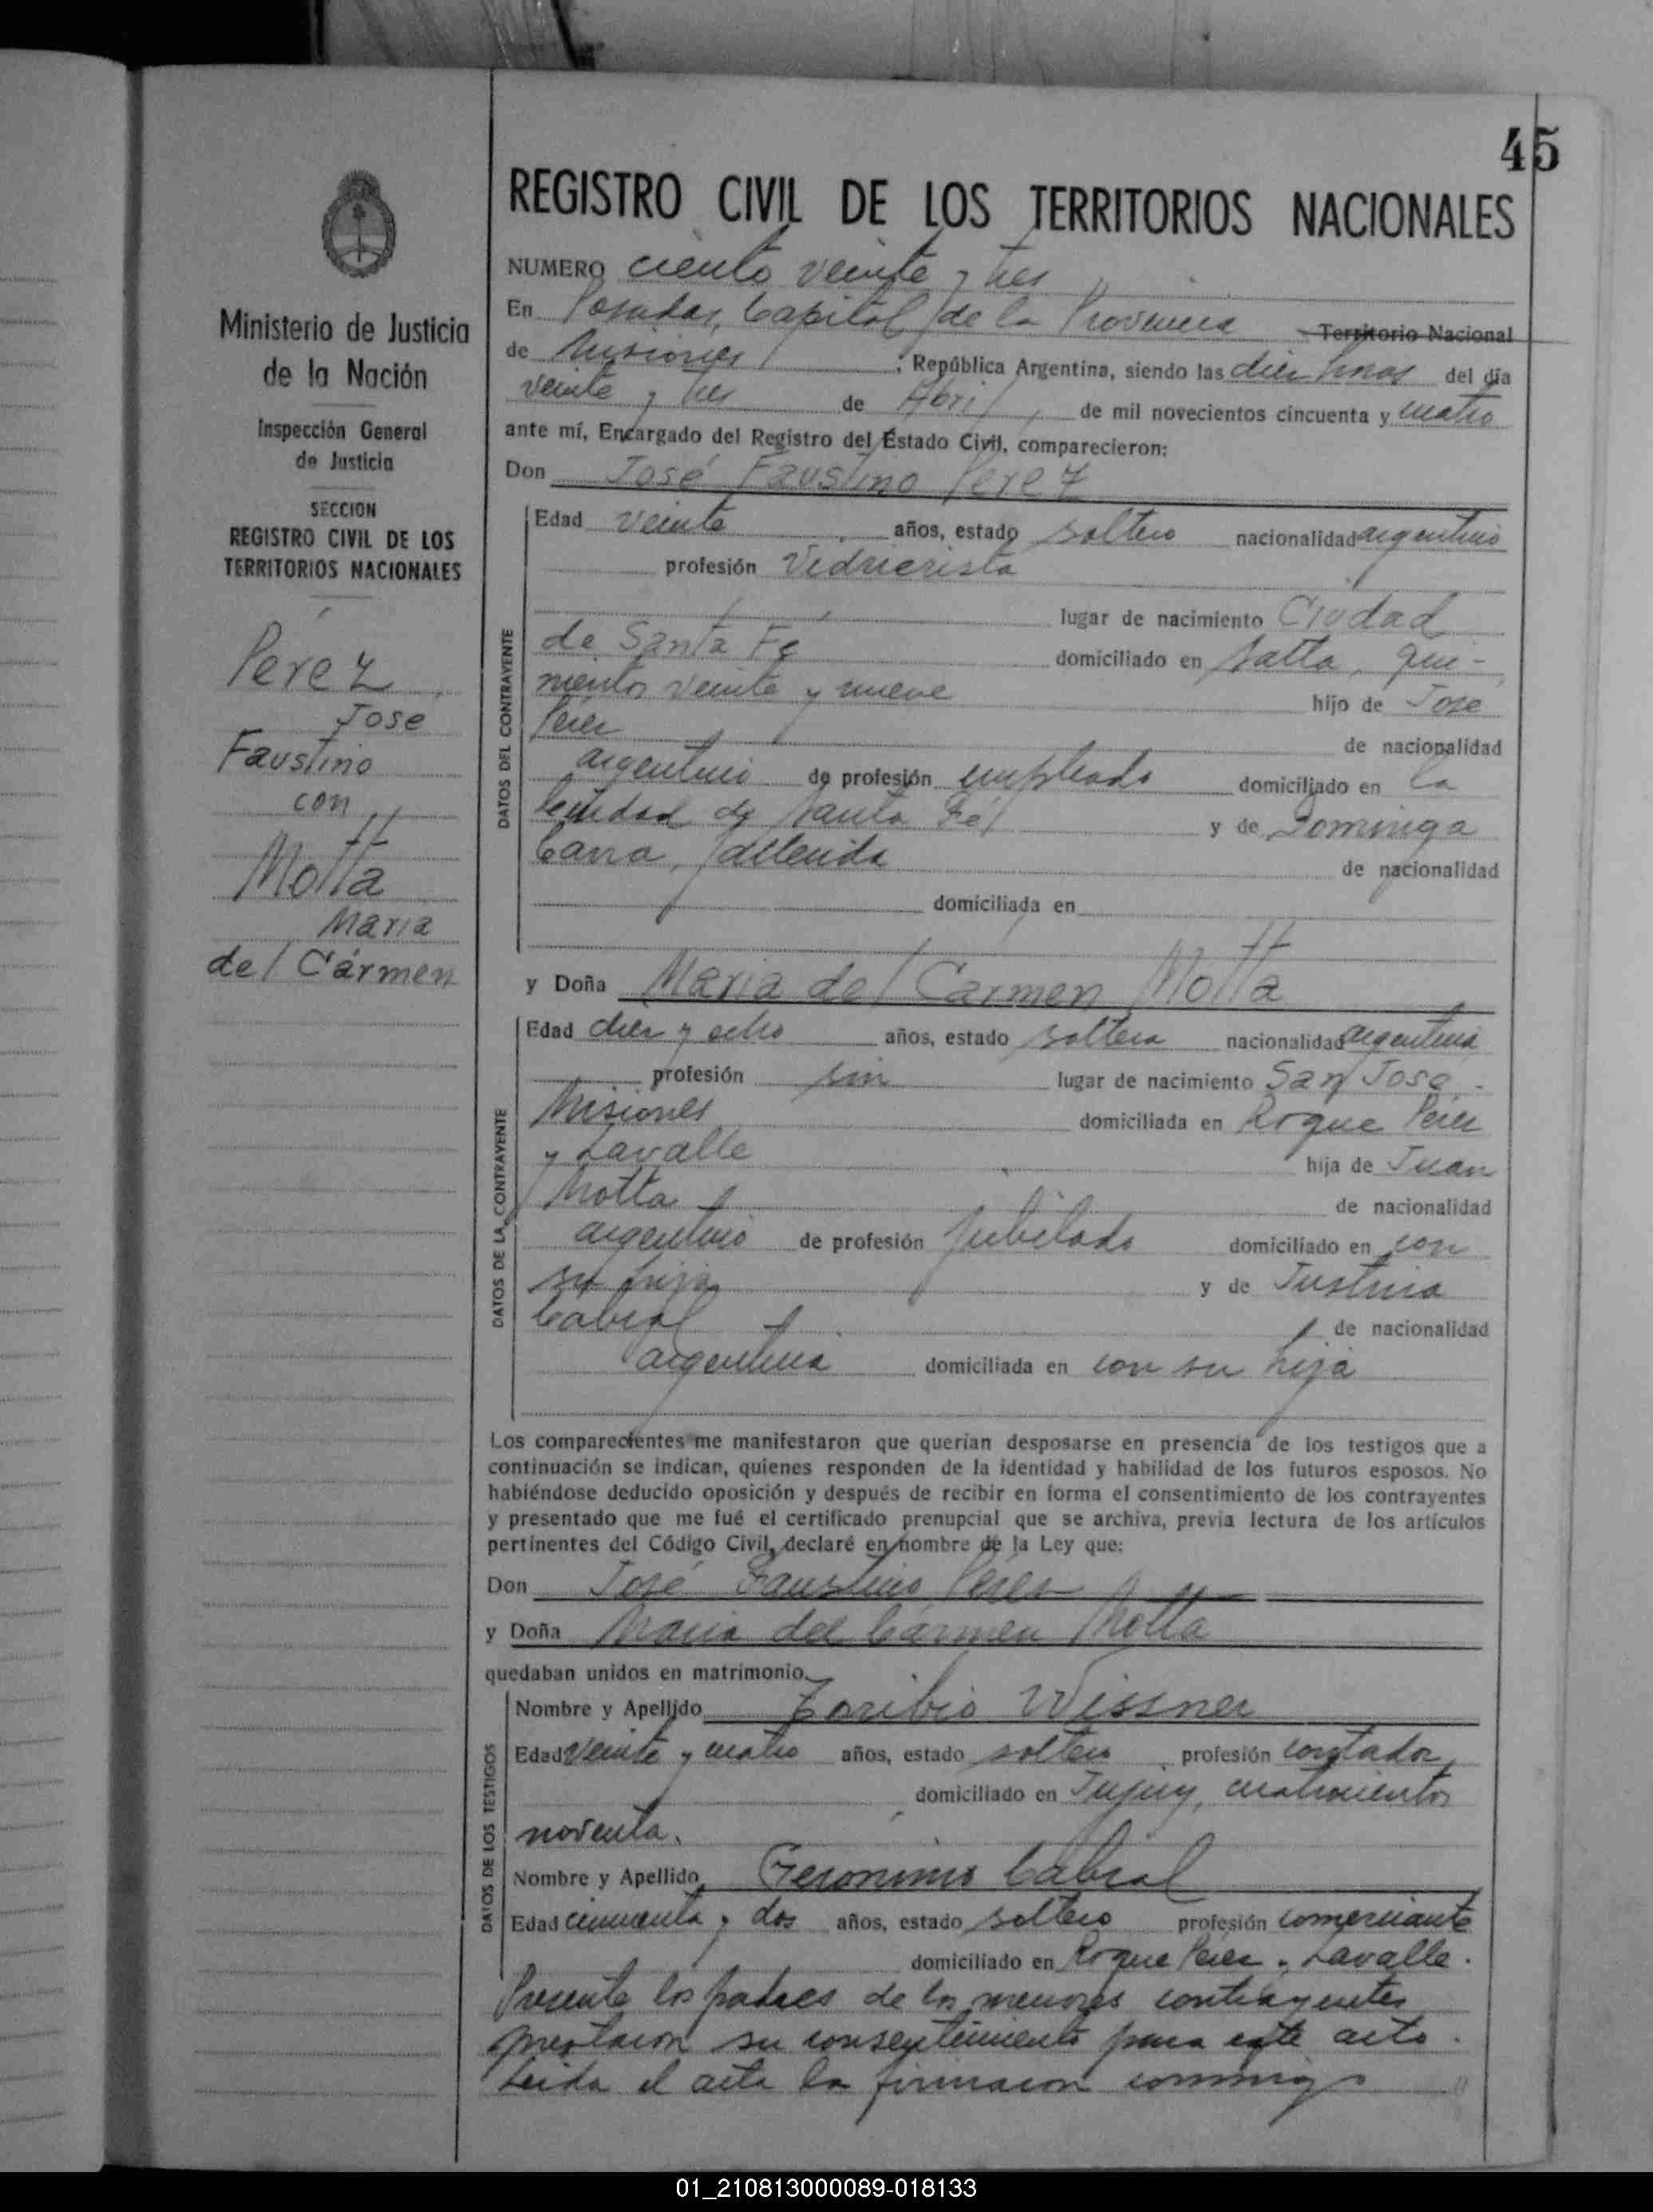 45
REGISTRO CIVIL DE LOS TERRITORIOS NACIONALES
Ministerio de Justicia
de la Nación
Inspección General
de Justicia
SECCION
REGISTRO CIVIL DE LOS
TERRITORIOS NACIONALES
Perez
José
Faustino
con
Motta
Maria
del Cármen
NUMERO ciento veinte y tres
En Posadas, Capital de la Provincia Territorio Nacional
de Misiones ; República Argentina, siendo las diez horas del día
veinte y tres de Abril, de mil novecientos cincuenta y cuatro
ante mí, Encargado del Registro del Estado Civil, comparecieron:
Don José Faustino Perez
DATOS DEL CONTRAYENTE
Edad veinte años, estado soltero nacionalidad argentino
profesión Vidrierista
lugar de nacimiento Ciudad
de Santa Fe domiciliado en Salta, qui-
nientos veinte y nueve hijo de José
Perez de nacionalidad
argentino de profesión empleado domiciliado en la
Ciudad de Santa Fé y de Dominga
de nacionalidad
domiciliada en
y Doña Maria del Carmen Motta
DATOS DE LA CONTRAYENTE
Edad diez y ocho años, estado soltera nacionalidad argentina
profesión sin lugar de nacimiento San José -
Misiones domiciliada en Roque Perez
y Lavalle hija de Juan
Motta de nacionalidad
argentino de profesión jubilado domiciliado en con
su hija y de Justina
Cabral de nacionalidad
argentina domiciliada en con su hija
Los comparecientes me manifestaron que querían desposarse en presencia de los testigos que a
continuación se indican, quienes responden de la identidad y habilidad de los futuros esposos. No
habiéndose deducido oposición y después de recibir en forma el consentimiento de los contrayentes
y presentado que me fué el certificado prenupcial que se archiva, previa lectura de los artículos
pertinentes del Código Civil, declaré en nombre de la Ley que:
Don José Faustino Perez
y Doña Maria del Cármen Motta
quedaban unidos en matrimonio.
DATOS DE LOS TESTIGOS
Nombre y Apellido Toribio Wissner
Edad veinte y cuatro años, estado soltero profesión contador,
domiciliado en Jujuy, cuatrocientos
noventa.
Nombre y Apellido Geronimo Cabral
Edad cincuenta y dos años, estado soltero profesión comerciante
domiciliado en Roque Perez y Lavalle.
Presente los padres de los menores contrayentes
prestaron su consentimiento para este acto.
Leida el acta la firmaron conmigo
01_210813000089-018133